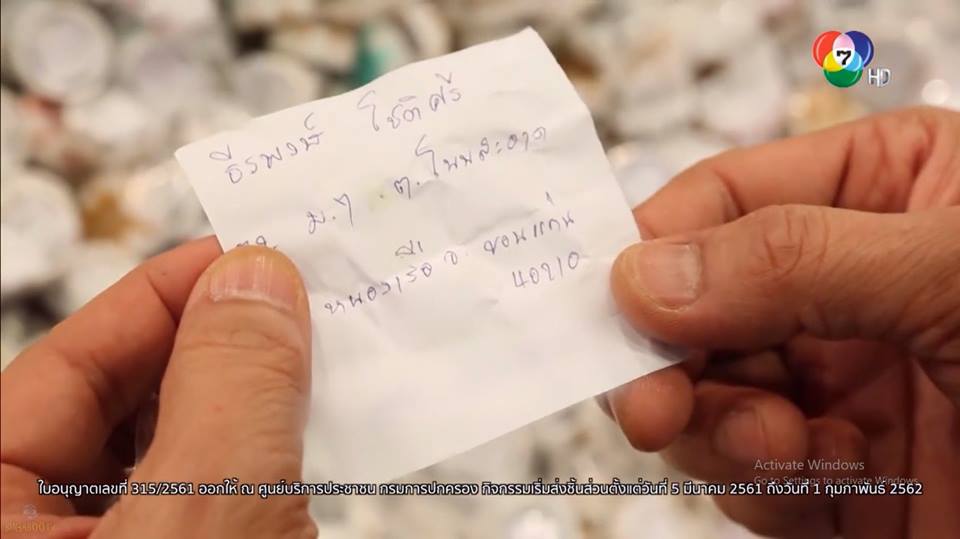 7 HD
ธีรพงษ์ โชติศรี
ม.7 ต.โนนสะอาด
หนองเรือ จ.ขอนแก่น
40210
Activate Windows
Go to Settings to activate Windows.
ใบอนุญาตเลขที่ 315/2561 ออกให้ ณ ศูนย์บริการประชาชน กรมการปกครอง กิจกรรมเริ่มส่งชิ้นส่วนตั้งแต่วันที่ 5 มีนาคม 2561 ถึงวันที่ 1 กุมภาพันธ์ 2562